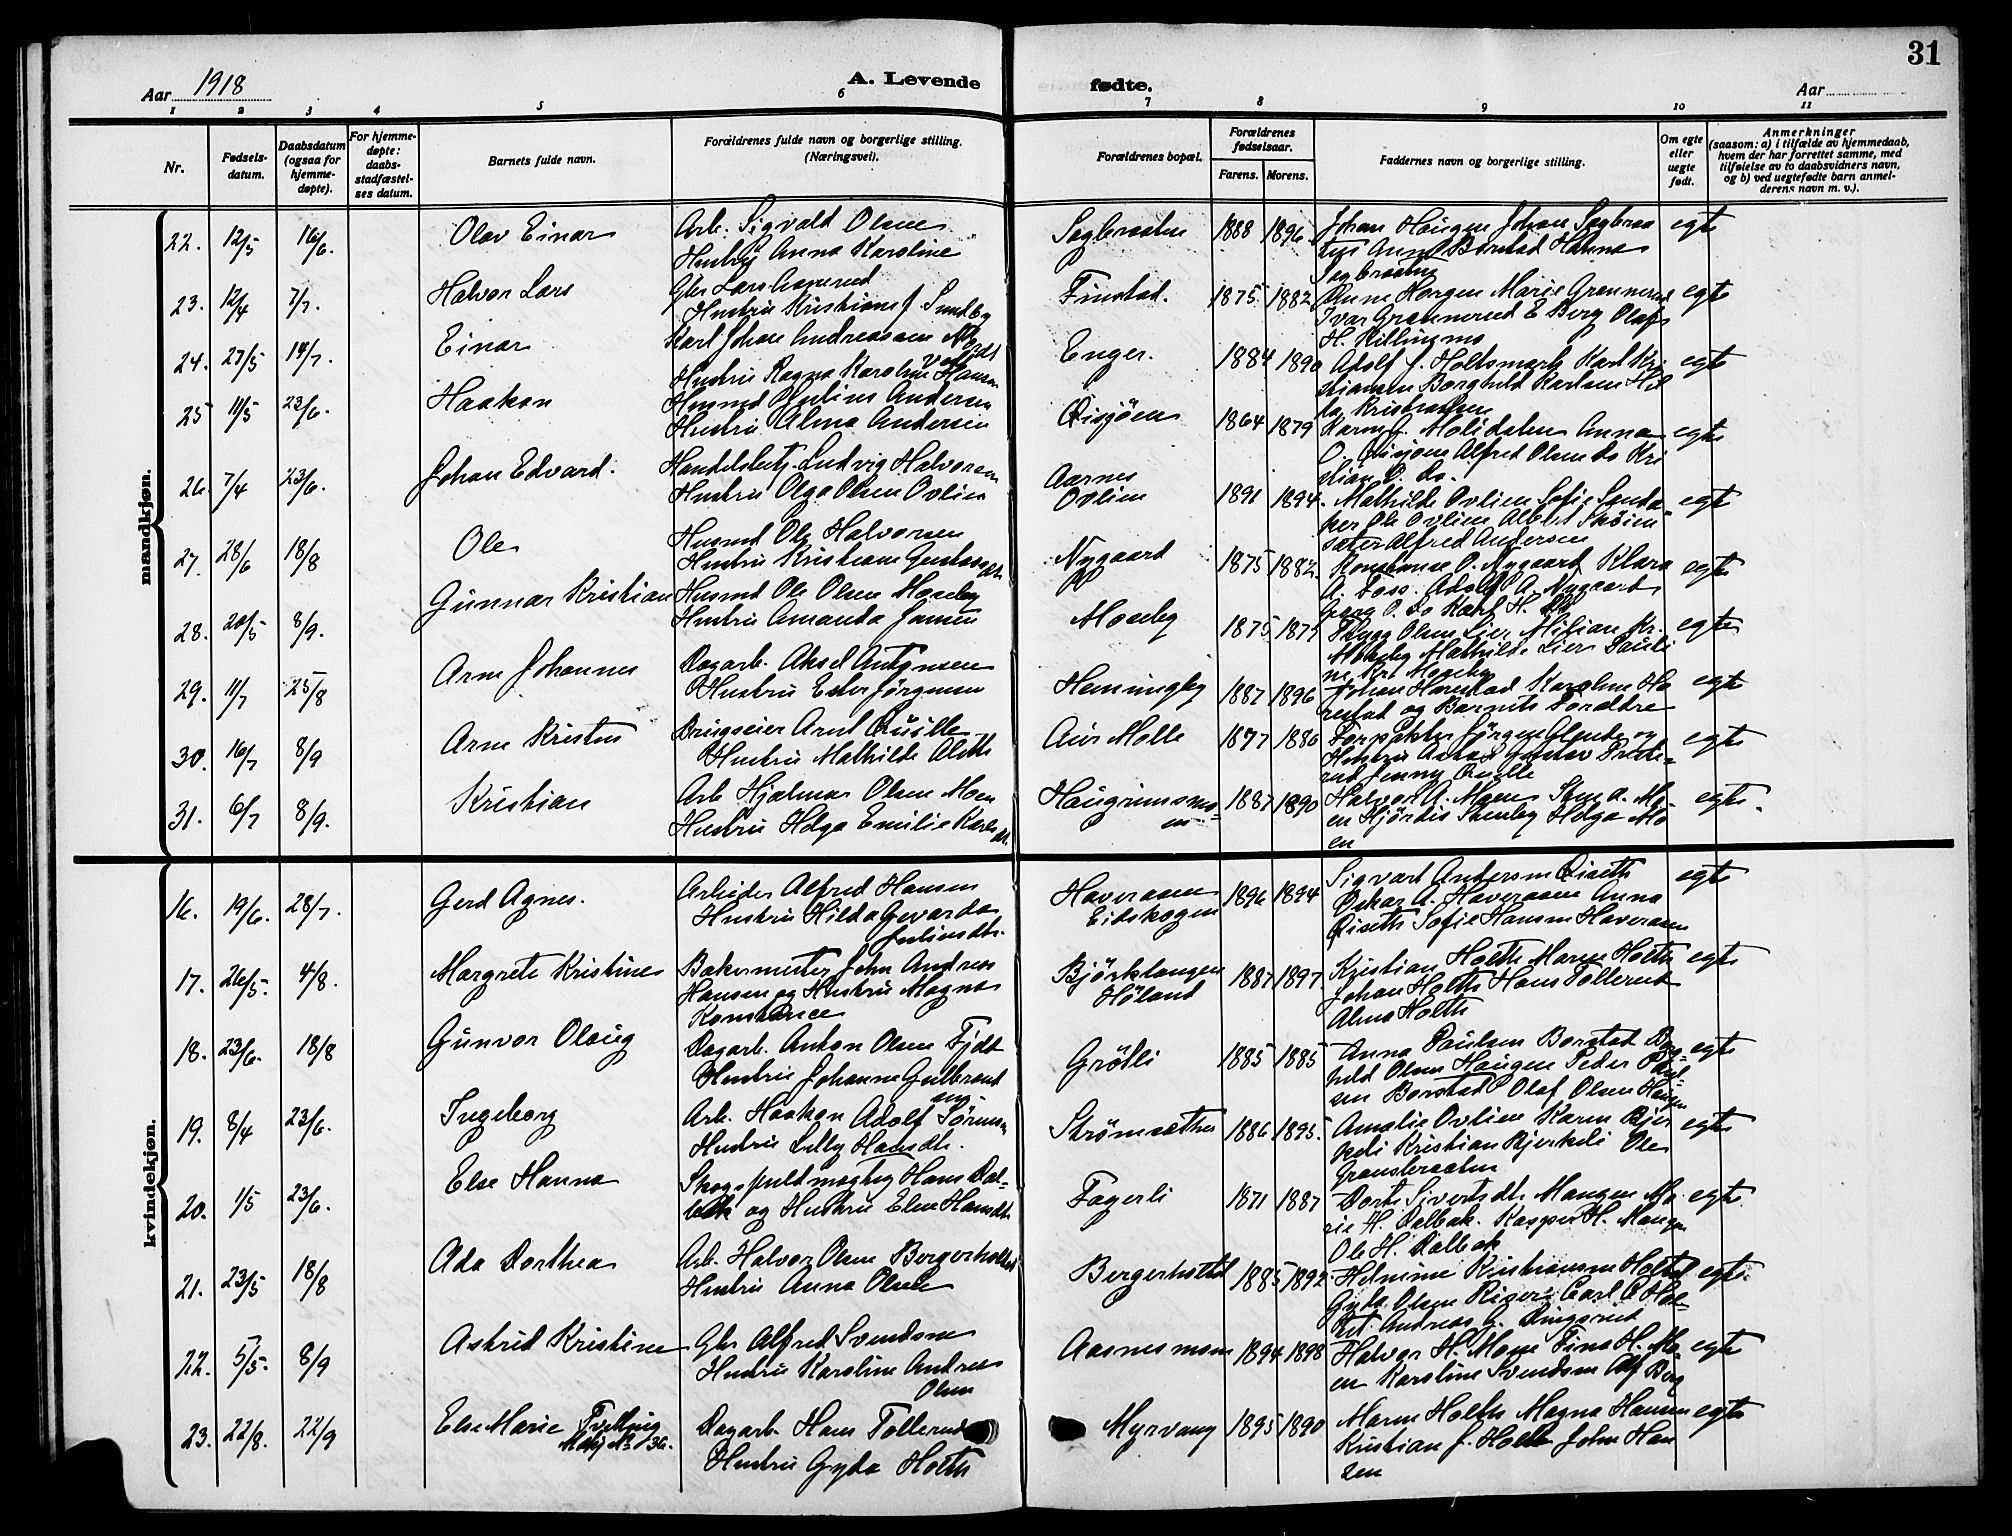 31
Aar 1918
A. Levende fødte.
Aar
1 2 3 4 5 6 7 8 9 10 11
Nr.
Fødsels-
datum.
Daabsdatum
(ogsaa for
hjemme-
døpte).
For hjemme-
døpte:
daabs-
stadfæstel-
ses datum.
Barnets fulde navn.
Forældrenes fulde navn og borgerlige stilling.
(Næringsvei).
Forældrenes bopæl.
Forældrenes
fødselsaar.
Farens. Morens.
Faddernes navn og borgerlige stilling.
Om egte
eller
uegte
født.
Anmerkninger
(saasom: a) i tilfælde av hjemmedaab,
hvem der har forrettet samme, med
tilføielse av to daabsvidners navn,
og b) ved uegtefødte barn anmel-
derens navn m. v.).
mandkjøn.
22. 12/5 16/6. Olav Einar
Arb. Sigvald Olsen
Hustru Anna Karoline
Sagbraaten 1888 1896
Johan Haugen Johan Sagbraa
ten Anna Borstad Hanna
Sagbraaten
egte
23. 12/4 7/7. Halvor Lars
Gbr Lars
Hustru Kristiane J. Sundby
Finstad. 1875 1882
Anne Horgen Marie Grønnerud
Ivar Grønnerud E Berg Olaf
H. Killingmo
egte
24. 27/5 14/7. Einar
Karl Johan Andreassen Nord
Hustru Ragna Karoline Hansen
Enger. 1884 1890
Adolf J. Holtsmark Karl Kri
stiansen Borghild Karlsen Hil
da Kristiansen
egte
25 11/5 23/6. Haakon
Husmd Julius Andersen
Hustru Alma Andersen
Qisjöen 1864 1879
Karen J. Molidalen Anna
O. Qisjöen Alfred Olsen do Kri
stian O. do.
egte
26 7/4 23/6. Johan Edvard.
Handelsbetj. Ludvig Halvorsen
Hustru Olga Olsen Ovlien
Aarnes
Ovlien 1891 1894.
Mathilde Ovlien Sofie Sanda
ker Ole Ovlien Albert Skøien
sæter Alfred Andersen
egte
27. 28/6 18/8 Ole
Husmd Ole Halvorsen
Hustru Kristiane Gustavsdtr.
Nygaard 1875 1882.
Konstanse O. Nygaard Klara
A. Foss. Adolf A. Nygaard
Georg O. do Karl H. do
egte
28. 20/5 8/9. Gunnar Kristian
Husmd Ole Olsen Moseby
Hustru Amanda Jansen
Moseby 1875 1875
Olsen Lier Milian Kr.
Moseby Mathilde Lier Pauli
ne Kr. Moseby
egte
29. 11/7 25/8 Arne Johannes
Dagarb. Aksel Antonsen
Hustru Ester Jörgensen
Hemingby 1887 1896
Johan Harestad Karoline Ha
restad og Barnets Foreldre
egte
30. 16/7 8/9 Arne Kristen
Brugseier Arnt Quille
Hustru Mathilde Aleth
Aur Mølle 1877 1886
Forpakter Jörgen og
Hustru Gustav Frede-
rud Jenny Quille
egte
31. 6/7 8/9. Kristian
Arb Hjalmar Olsen Moen
Hustru Helga Emilie Karlsdtr.
Haugrimsmo-
en 1887 1890
Halvor A. Moen Sten A. Mo
en Hjördis Stenby Helga Mo
en
egte.
kvindekjøn.
16. 19/6. 28/7. Gerd Agnes.
Arbeider Alfred Hansen
Hustru Hilda Gevarda
Juliusdtr.
Haveraaen
Eidskogen 1896 1894
Sigvart Andersen Qiseth
Oskar A. Haveraaen Anna
Qiseth Sofie Hansen Haveraaen
egte
17. 26/5. 4/8. Margrete Kristine
Bakermester John Andreas
Hansen og Hustru Magna
Konstance
Bjørklangen
Høland 1887 1897.
Kristian Holth Maren Holth
Johan Holth Hans Tollerud
Alma Holth
egte
18. 23/6. 18/8 Gunvor Olaug
Dagarb. Anton Olsen Fjdt
Hustru Johanne Gulbrand
sen.
Grötli 1885 1885
Anna Paulsen Borstad Borg-
hild Olsen Haugen Peder Paul-
sen Borstad Olaf Olsen Haugen
egte
19. 8/4 23/6. Ingeborg
Arb. Haakon Adolf Sörensen
Hustru Lilly Hansdtr.
Strømsæther 1886 1895.
Amalie Ovlien Karen Bjer
keli Kristian Bjerkeli Ole
Gransbraaten
egte
20. 1/5 23/6. Else Hanna
Skogsfuldmægtig Hans Dal-
bak og Hustru Elen Hansdtr.
Fagerli 1871 1887
Dorte Sivertsdtr. Mangen Ma
rie H. Dalbak. Kasper H. Mangen
Ole H. Dalbak
egte
21. 23/5 18/8 Ada Dorthea
Arb. Halvor Olsen Bergerholtet
Hustru Anna Olsen
Bergerholtet 1885 1892.
Helmine Kristiansen Holtet
Gyda Olsen Riser Carl C Hol-
tet. Andreas G. Ringsrud
egte.
22. 5/5. 8/9 Astrid Kristine
Gbr Alfred Svendsen
Hustru Karoline Andrea
Olsen
Aasnesmoen 1894 1898
Halvor H. Moen Tina H. Mo-
en Karoline Svendsen Alf Berg
egte
23. 22/8. 22/9 Else Marie Tvilling
Dagarb. Hans Tollerud
Hustru Gyda Holth
Myrvang 1895 1890
Maren Holth Magna Hansen
Kristian J. Holth John Han
sen
egte